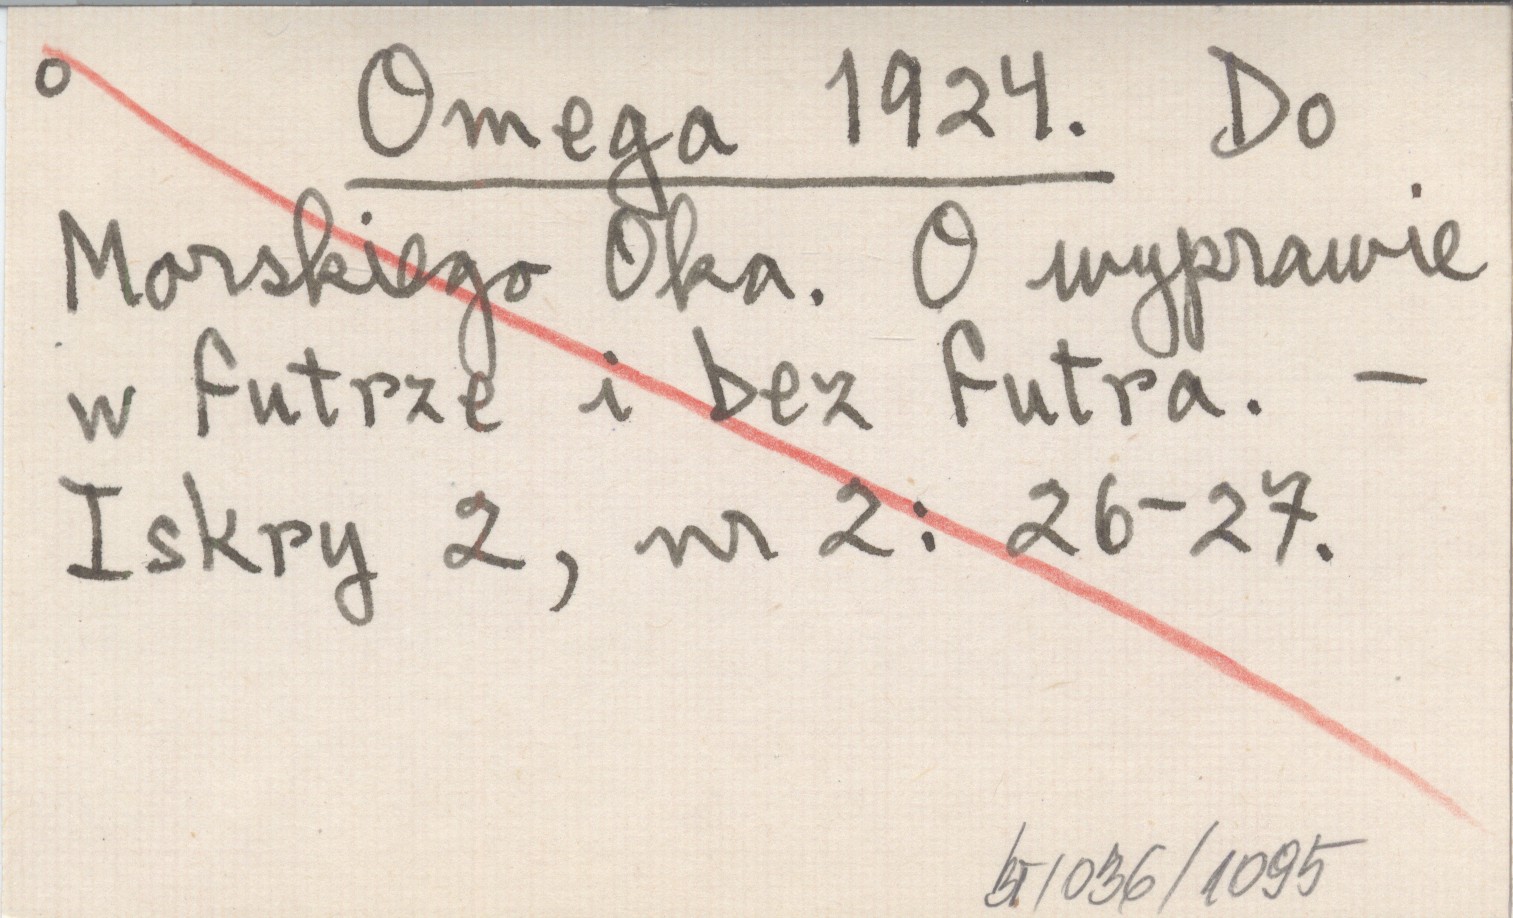 o Omega 1924. Do
Morskiego Oka. O wyprawie
w futrze i bez futra. –
Iskry 2, nr 2: 26-27.
/036/1095